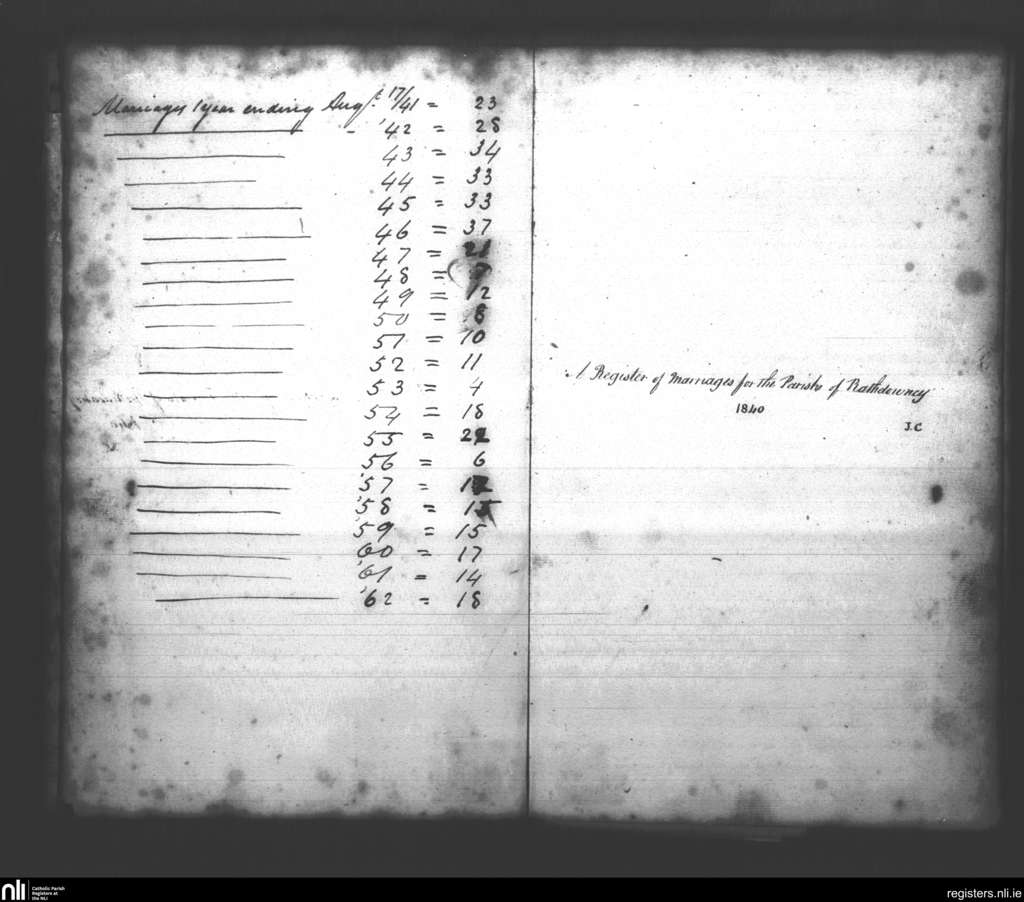 Marriages 1 year ending Augt. 17/41 = 23
'42 = 28
43 = 34
44 = 33
45 = 33
46 = 37
47 = 21
48 = 7
49 = 12
50 = 8
51 = 10
52 = 11
53 = 4
54 = 18
55 = 22
56 = 6
'57 = 12
'58 = 15
'59 = 15
'60 = 17
'61 = 14
'62 = 18
A Register of Marriages for the Parish of Rathdowney
1840
J.C
nli
Catholic Parish
Registers at
the NLI
registers.nli.ie